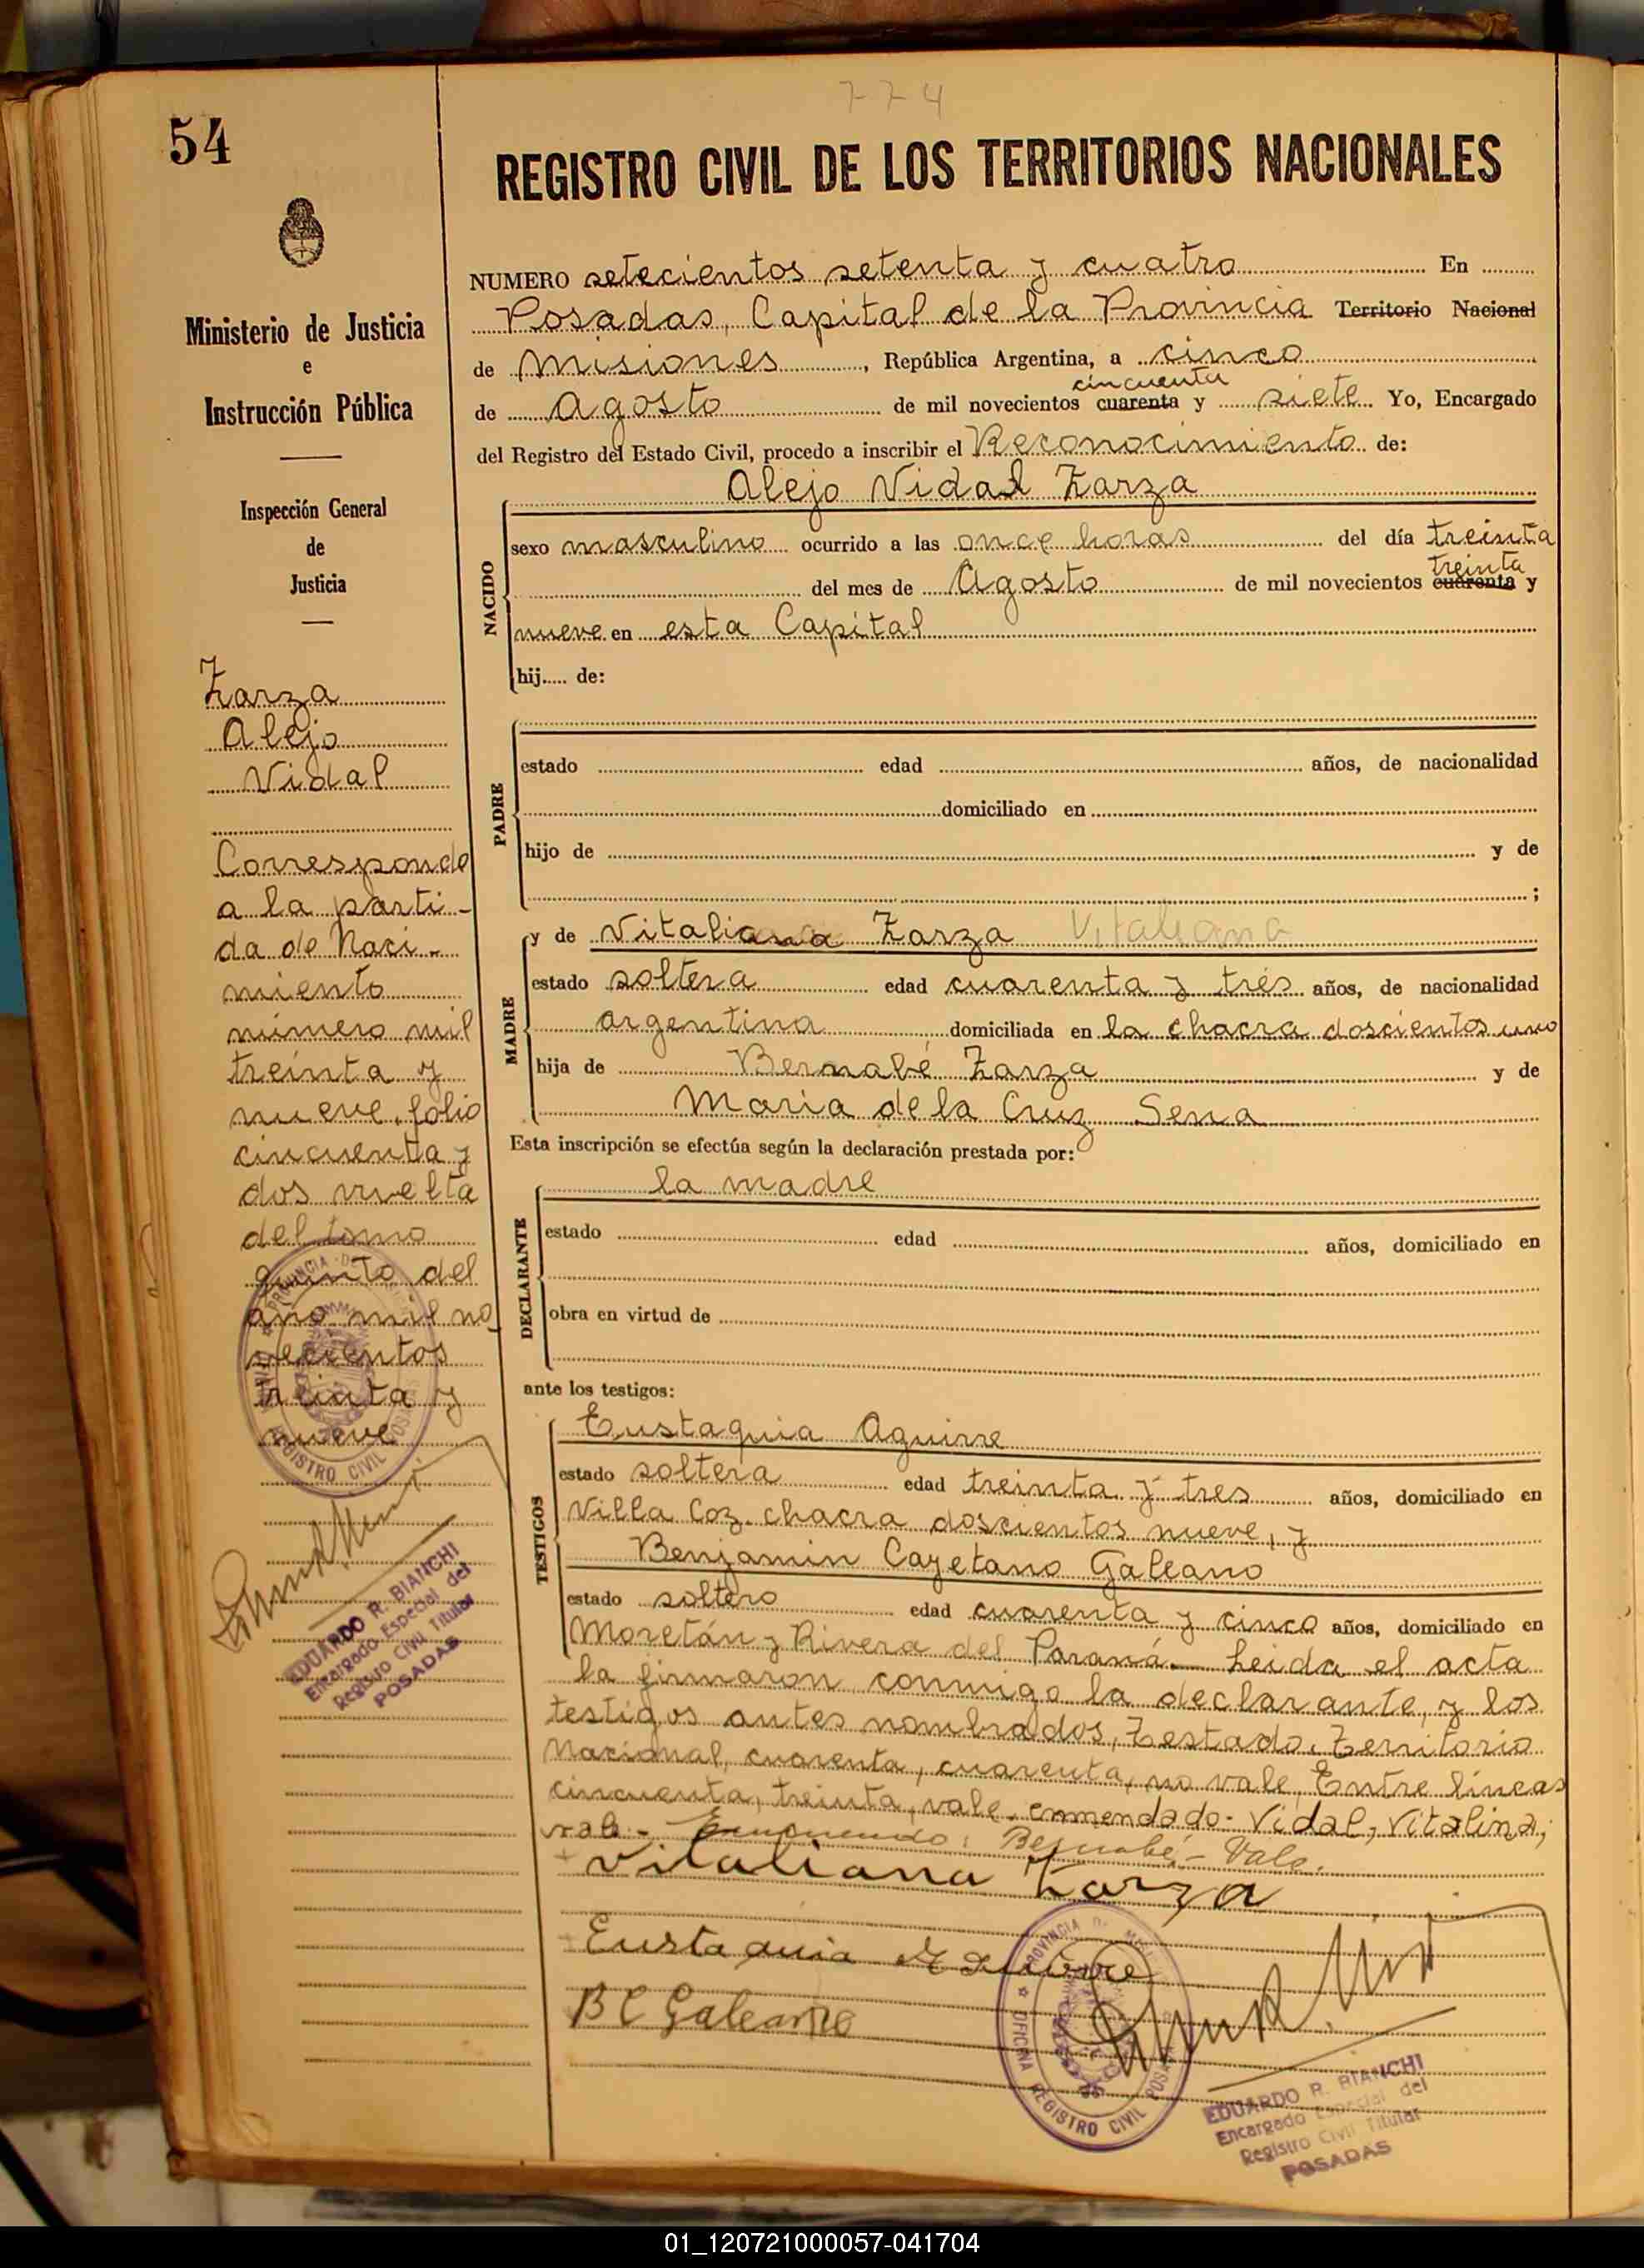 774
54
REGISTRO CIVIL DE LOS TERRITORIOS NACIONALES
Ministerio de Justicia
e
Instrucción Pública
Inspección General
de
Justicia
Zarza
Alejo
Vidal
Corresponde
a la parti-
da de Naci-
miento
número mil
treinta y
nueve, folio
cincuenta y
dos vuelta
del tomo
quinto del
año mil no
vecientos
treinta y
nueve
PROVINCIA DE
REGISTRO CIVIL POSADAS
EDUARDO R. BIANCHI
Encargado Especial del
Registro Civil Titular
POSADAS
NUMERO setecientos setenta y cuatro En
Posadas, Capital de la Provincia Territorio Nacional
de Misiones, República Argentina, a cinco
cincuenta
de Agosto de mil novecientos cuarenta y siete Yo, Encargado
del Registro del Estado Civil, procedo a inscribir el Reconocimiento de:
Alejo Vidal Zarza
NACIDO
sexo masculino ocurrido a las once horas del día treinta
treinta
del mes de Agosto de mil novecientos cuarenta y
nueve en esta Capital
hij..... de:
PADRE
estado edad años, de nacionalidad
domiciliado en
hijo de y de
;
MADRE
y de Vitaliana Zarza Vitaliana
estado soltera edad cuarenta y tres años, de nacionalidad
argentina domiciliada en la chacra doscientos uno
hija de Bernabé Zarza y de
Maria de la Cruz Sena
Esta inscripción se efectúa según la declaración prestada por:
DECLARANTE
la madre
estado edad años, domiciliado en
obra en virtud de
ante los testigos:
TESTIGOS
Eustaquia Aguirre
estado soltera edad treinta y tres años, domiciliado en
Villa Coz. chacra doscientos nueve, y
Benjamin Cayetano Galeano
estado soltero edad cuarenta y cinco años, domiciliado en
Moretán y Rivera del Paraná. Leida el acta
la firmaron conmigo la declarante, y los
testigos antes nombrados, Testado. Territorio
Nacional, cuarenta, cuarenta, no vale, Entre líneas
cincuenta, treinta, vale. enmendado- Vidal, Vitalina,
vale - Enmendado: Bernabé - Vale.
Vitaliana Zarza
Eustaquia Aguirre
B C Galeano
PROVINCIA DE
OFICINA REGISTRO CIVIL POSADAS
EDUARDO R. BIANCHI
Encargado Especial del
Registro Civil Titular
POSADAS
01_120721000057-041704